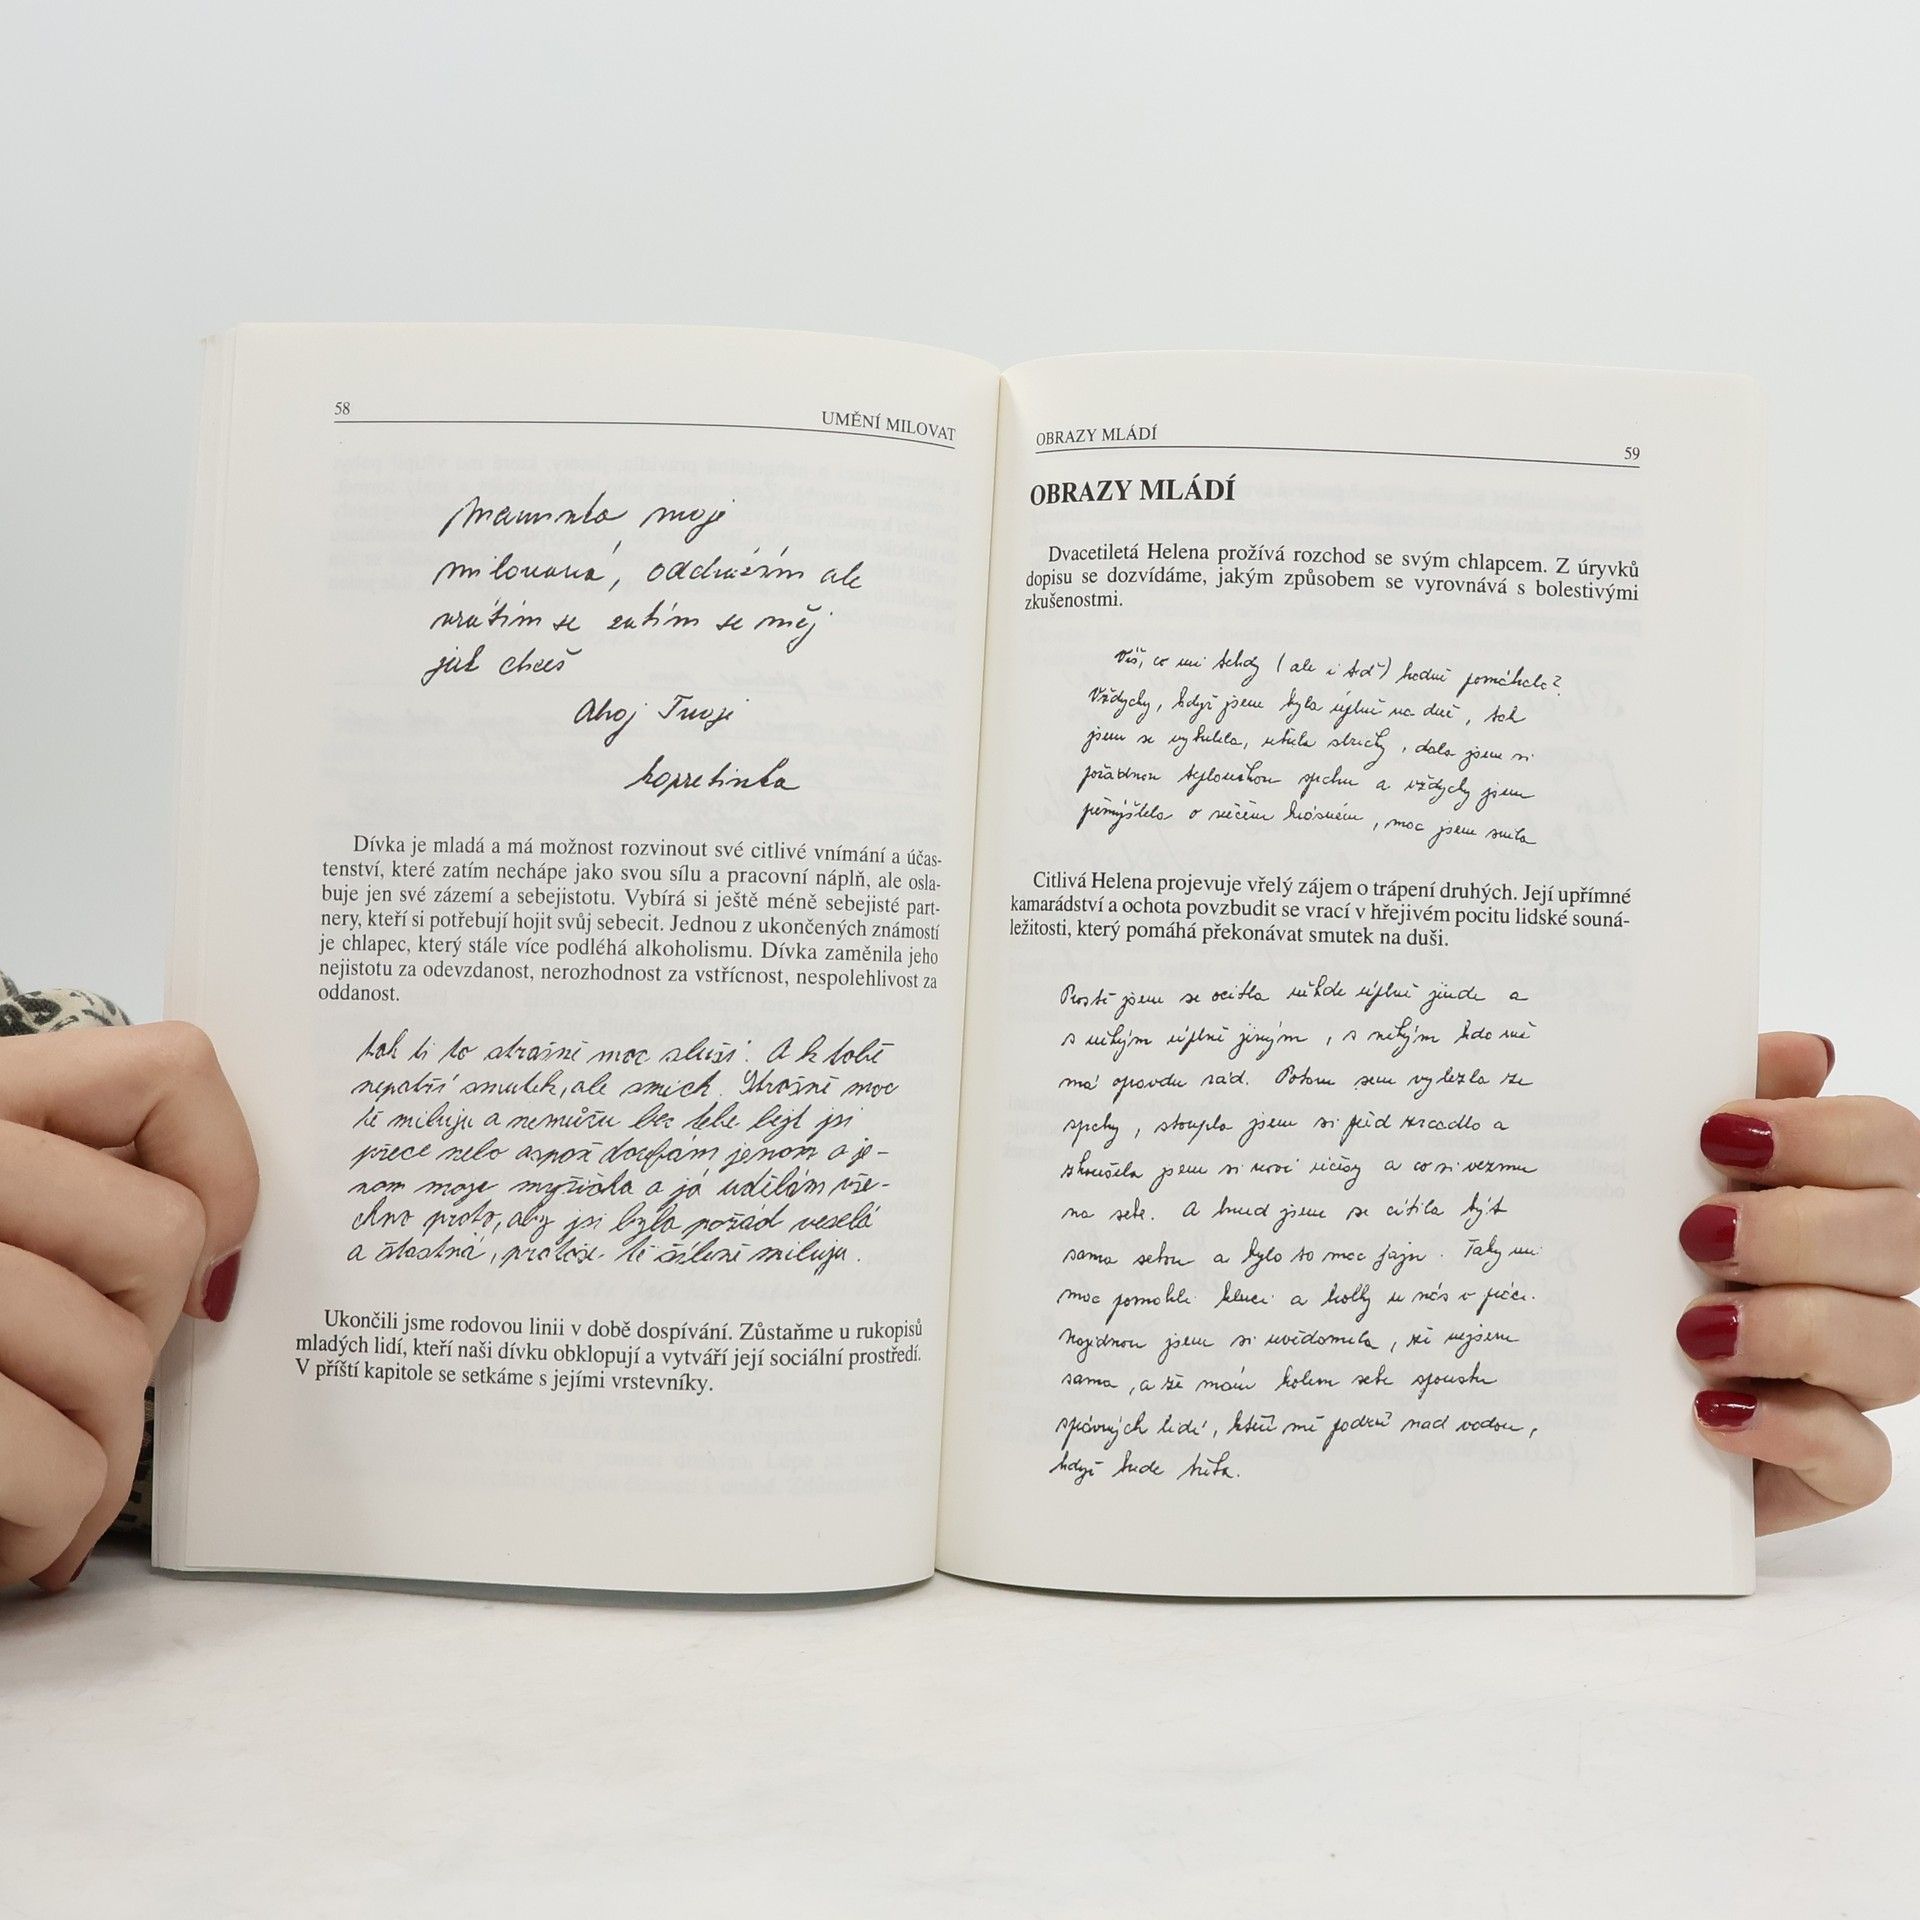 58
UMĚNÍ MILOVAT
Maminko moje
milovaná, odcházím ale
vrátím se zatím se měj
jak chceš
Ahoj Tvoje
kopretinka
Dívka je mladá a má možnost rozvinout své citlivé vnímání a účas-
tenství, které zatím nechápe jako svou sílu a pracovní náplň, ale osla-
buje jen své zázemí a sebejistotu. Vybírá si ještě méně sebejisté part-
nery, kteří si potřebují hojit svůj sebecit. Jednou z ukončených známostí
je chlapec, který stále více podléhá alkoholismu. Dívka zaměnila jeho
nejistotu za odevzdanost, nerozhodnost za vstřícnost, nespolehlivost za
oddanost.
tak ti to strašně moc sluší. A k tobě
nepatří smutek, ale smích. Strašně moc
tě miluju a nemůžu bez tebe bejt jsi
přece nebo aspoň doufám jenom a je-
nom moje myšička a já udělám vše-
chno proto, aby jsi byla pořád veselá
a šťastná, protože tě šíleně miluju.
Ukončili jsme rodovou linii v době dospívání. Zůstaňme u rukopisů
mladých lidí, kteří naši dívku obklopují a vytváří její sociální prostředí.
V příští kapitole se setkáme s jejími vrstevníky.
OBRAZY MLÁDÍ
59
OBRAZY MLÁDÍ
Dvacetiletá Helena prožívá rozchod se svým chlapcem. Z úryvků
dopisu se dozvídáme, jakým způsobem se vyrovnává s bolestivými
zkušenostmi.
Víš, co mi tehdy (ale i teď) hodně pomáhalo?
Vždycky, když jsem byla úplně na dně, tak
jsem se, dala jsem si
pořádnou teploučkou sprchu a vždycky jsem
přemýšlela o něčem krásném, moc jsem snila
Citlivá Helena projevuje vřelý zájem o trápení druhých. Její upřímné
kamarádství a ochota povzbudit se vrací v hřejivém pocitu lidské souná-
ležitosti, který pomáhá překonávat smutek na duši.
Prostě jsem se ocitla někde úplně jinde a
s někým úplně jiným, s někým kdo mě
má opravdu rád. Potom sem vylezla ze
sprchy, stoupla jsem si před zrcadlo a
zkoušela jsem si nové účesy a co si vezmu
na sebe. A hned jsem se cítila být
sama sebou a bylo to moc fajn. Taky mi
moc pomohli kluci a holky u nás v práci.
Najednou jsem si uvědomila, že nejsem
sama, a že mám kolem sebe spoustu
správných lidí, kteří mě podrží nad vodou,
když bude třeba.